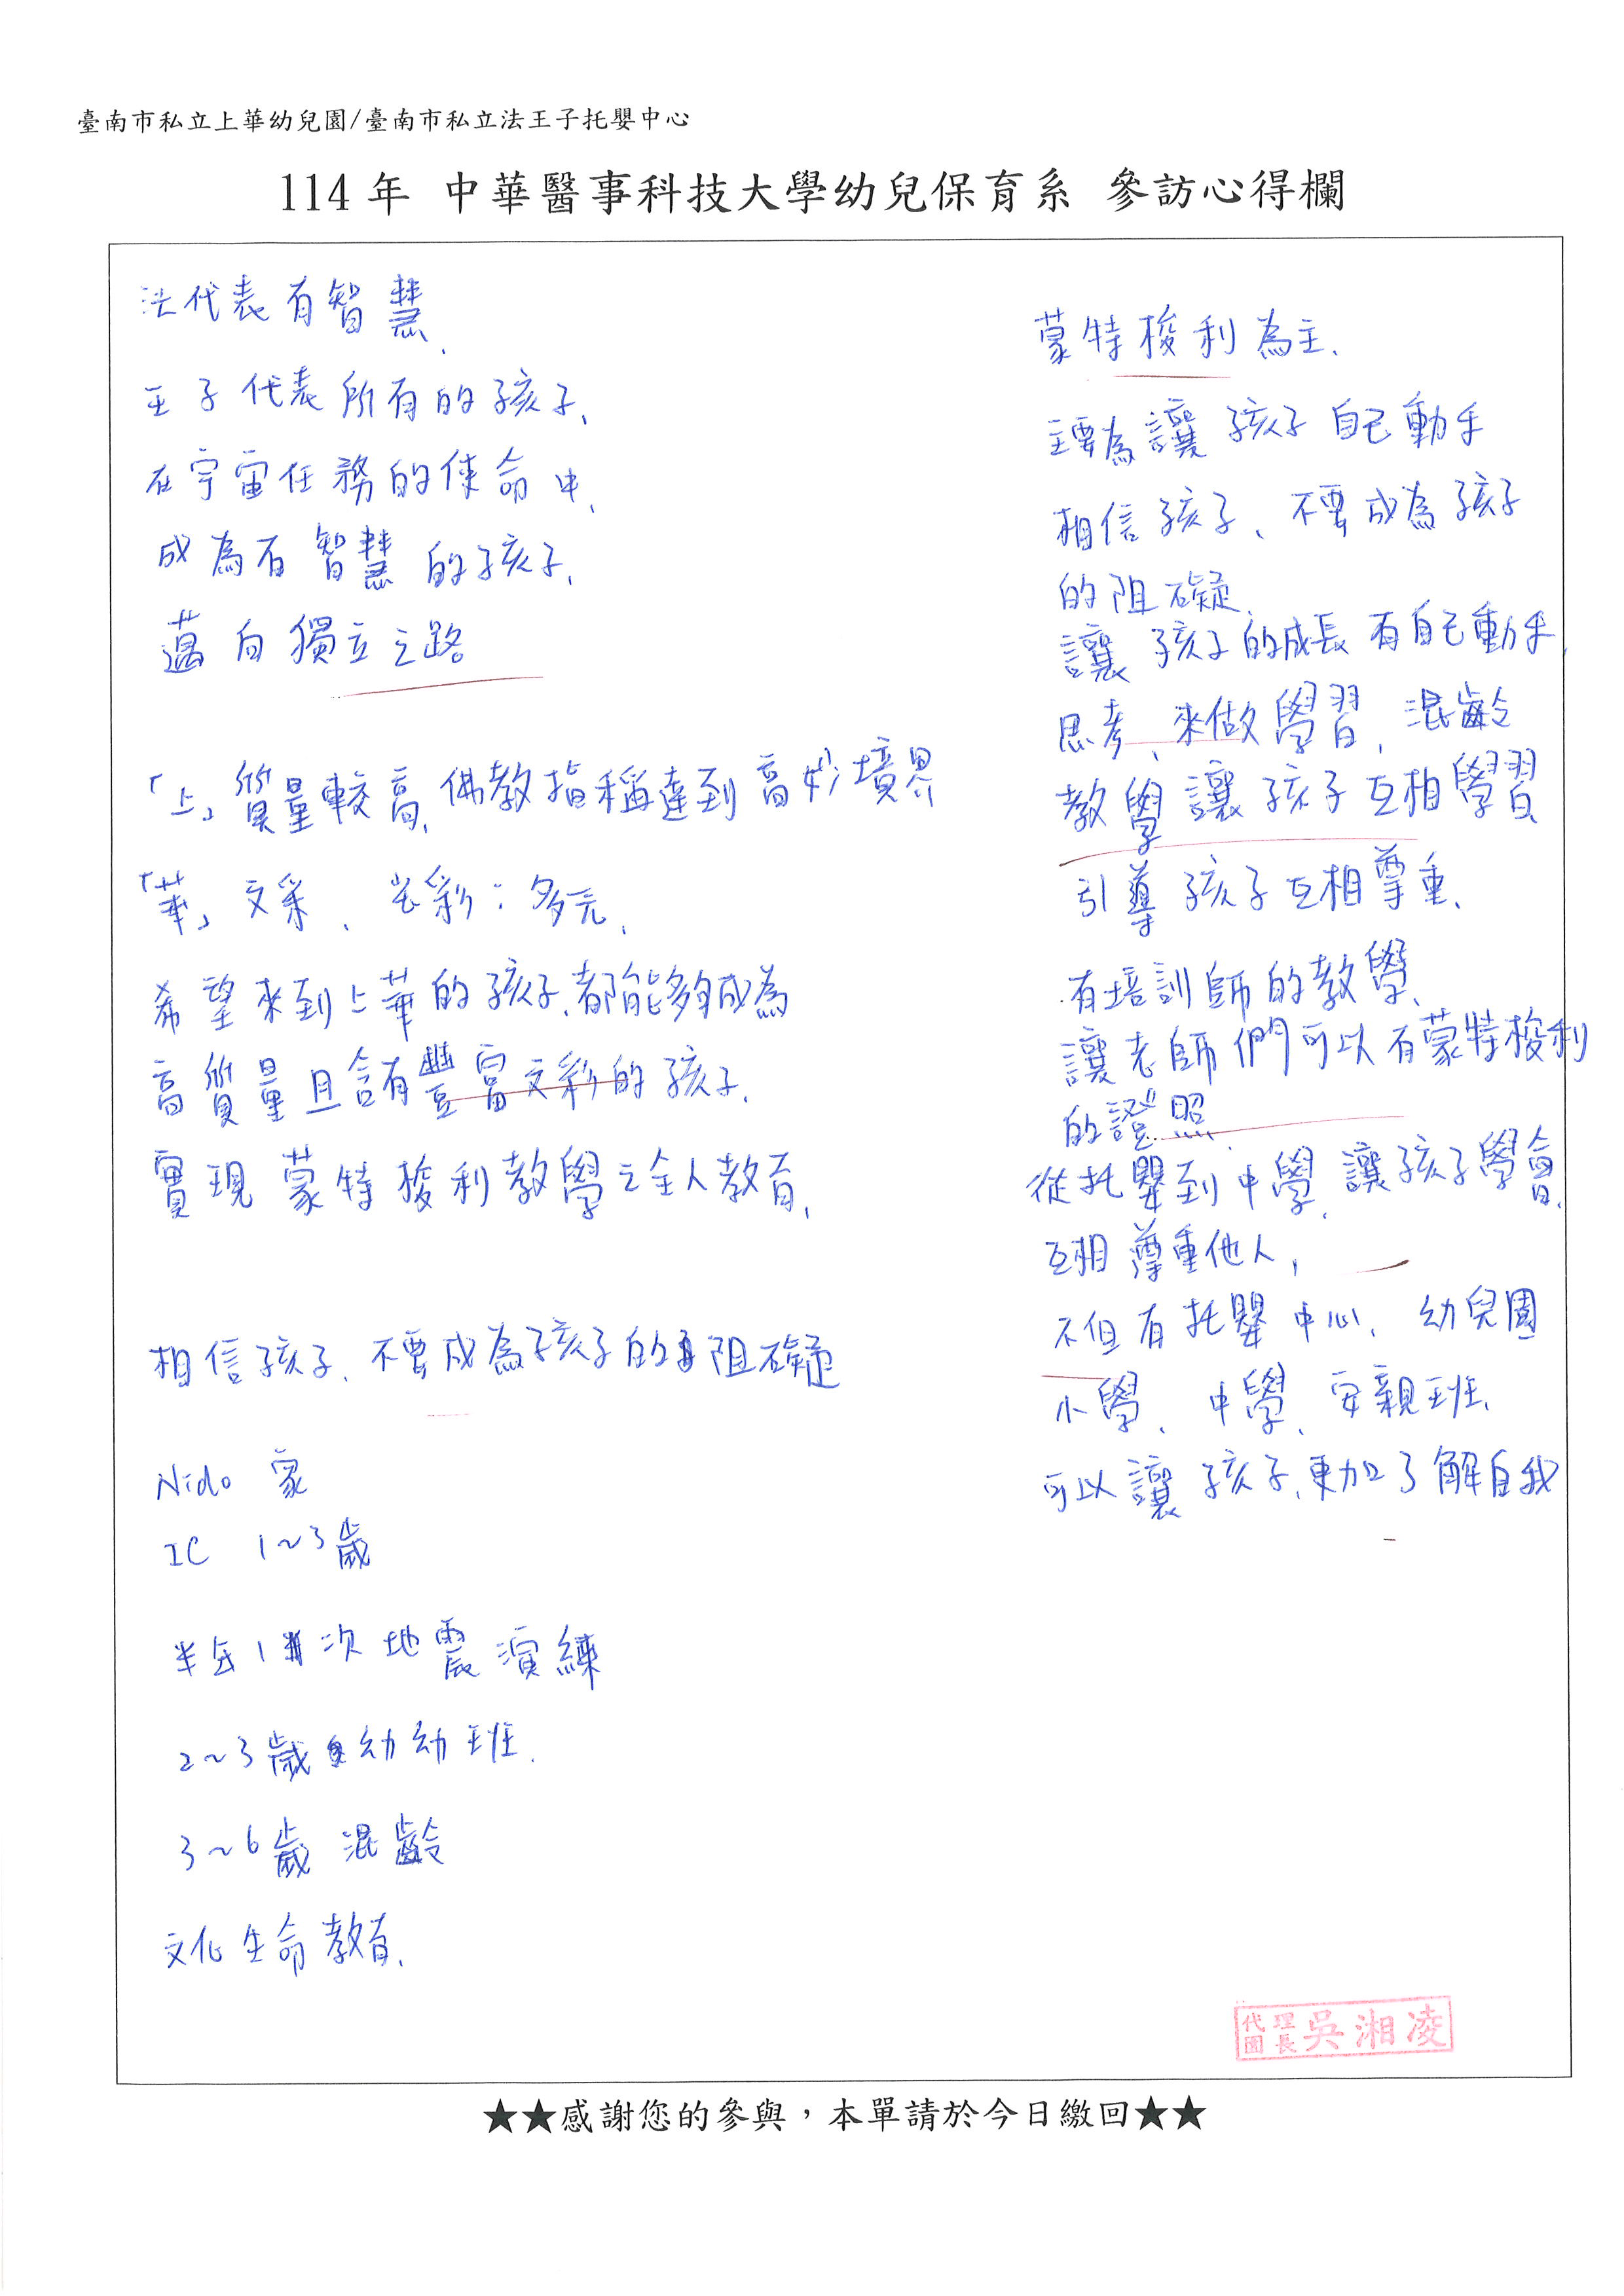 臺南市私立上華幼兒園/臺南市私立法王子托嬰中心
114年 中華醫事科技大學幼兒保育系 參訪心得欄
法代表有智慧、
王子代表所有的孩子、
在宇宙任務的使命中、
成為有智慧的孩子、
邁向獨立之路
「上」質量較高、佛教指稱達到高妙境界
「華」文采、光彩:多元、
希望來到上華的孩子、都能夠成為
高質量且含有豐富文彩的孩子、
實現蒙特梭利教學之全人教育、
相信孩子、不要成為孩子的阻礙
Nido 家
IC 1~3歲
半年1次地震演練
2~3歲幼幼班、
3~6歲混齡
文化生命教育、
蒙特梭利為主、
主要為讓孩子自己動手
相信孩子、不要成為孩子
的阻礙、
讓孩子的成長有自己動手、
思考、來做學習,混齡
教學讓孩子互相學習、
引導孩子互相尊重、
有培訓師的教學、
讓老師們可以有蒙特梭利
的證照、
從托嬰到中學、讓孩子學會、
互相尊重他人,
不但有托嬰中心、幼兒園
小學、中學、安親班、
可以讓孩子、更加了解自我
代理園長 吳湘凌
★★感謝您的參與,本單請於今日繳回★★